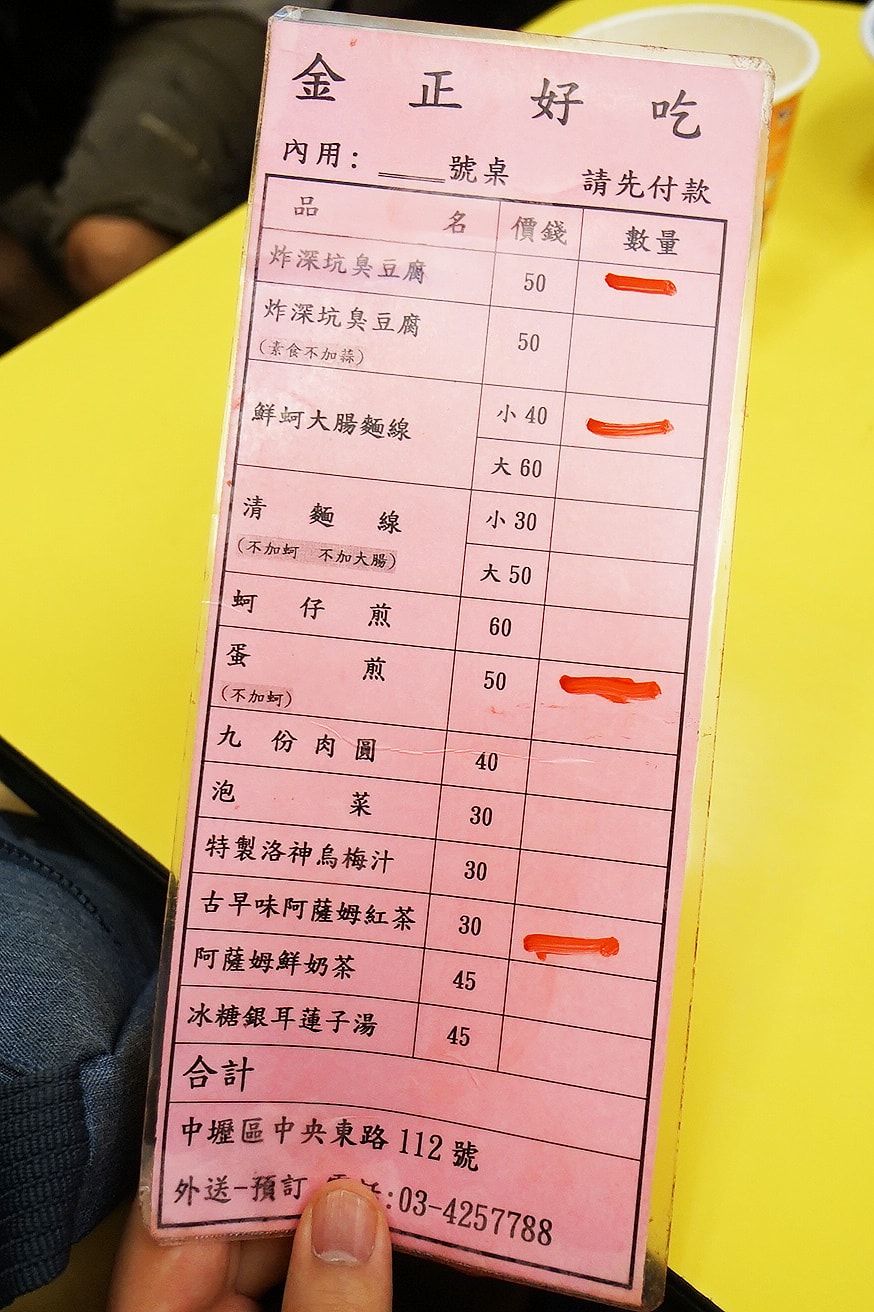 金正好吃
內用：____號桌 請先付款
品名 價錢 數量
炸深坑臭豆腐 50
炸深坑臭豆腐 50
(素食不加蒜)
鮮蚵大腸麵線 小 40
大 60
清麵線 小 30
(不加蚵 不加大腸) 大 50
蚵仔煎 60
蛋煎 50
(不加蚵)
九份肉圓 40
泡菜 30
特製洛神烏梅汁 30
古早味阿薩姆紅茶 30
阿薩姆鮮奶茶 45
冰糖銀耳蓮子湯 45
合計
中壢區中央東路 112 號
外送-預訂 :03-4257788